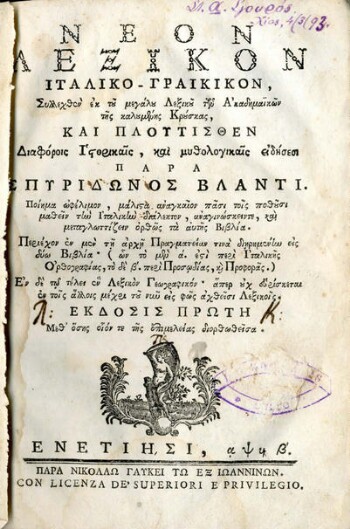 Π. Α. Σγουρός
Χίος, 4/3/93.
ΝΕΟΝ
ΛΕΞΙΚΟΝ
ΙΤΑΛΙΚΟ-ΓΡΑΙΚΙΚΟΝ,
Συλλεχθὲν ἐκ τȣ͂ μεγάλȣ Λεξικȣ͂ τῶν Ἀκαδημαϊκῶν
τῆς καλȣμένης Κρȣ́σκας,
ΚΑΙ ΠΛΟΥΤΙΣΘΕΝ
Διαφόροις Ἱϛορικαῖς, καὶ μυθολογικαῖς εἰδήσεσι
ΠΑΡΑ
ΣΠΥΡΙΔΩΝΟΣ ΒΛΑΝΤΙ.
Ποίημα ὠφέλιμον, μάλιϛα ἀναγκαῖον πᾶσι τοῖς ποθȣ͂σι
μαθεῖν τὴν Ἰταλικὴν διάλεκτον, ἀναγινώσκειν τε, καὶ
μεταγλωττίζειν ὀρθῶς τὰ αὐτῆς Βιβλία.
Περιέχον ἐν μὲν τῇ ἀρχῇ Πραγματείαν τινὰ διῃρημένην εἰς
δύω Βιβλία· (ὧν τὸ μὲν α. ἐϛὶ περὶ Ἰταλικῆς
Ὀρθογραφίας, τὸ δὲ β. περὶ Προσῳδίας, καὶ Προφορᾶς.)
Ἐν δὲ τῷ τέλει ἓν Λεξικὸν Γεωγραφικὸν· ἅπερ ȣ̓χ εὑρίσκεται
ἐν τοῖς ἄλλοις μέχρι τȣ͂ νῦν εἰς φῶς ἀχθεῖσι Λεξικοῖς.
ΕΚΔΟΣΙΣ ΠΡΩΤΗ
Μεθ' ὅσης οἷόν τε τῆς ἐπιμελείας διορθωθεῖσα.
ΕΝΕΤΙΗΣΙ, αψϟβ.
ΠΑΡΑ ΝΙΚΟΛΑΩ ΓΛΥΚΕΙ ΤΩ ΕΞ ΙΩΑΝΝΙΝΩΝ.
CON LICENZA DE' SUPERIORI E PRIVILEGIO.